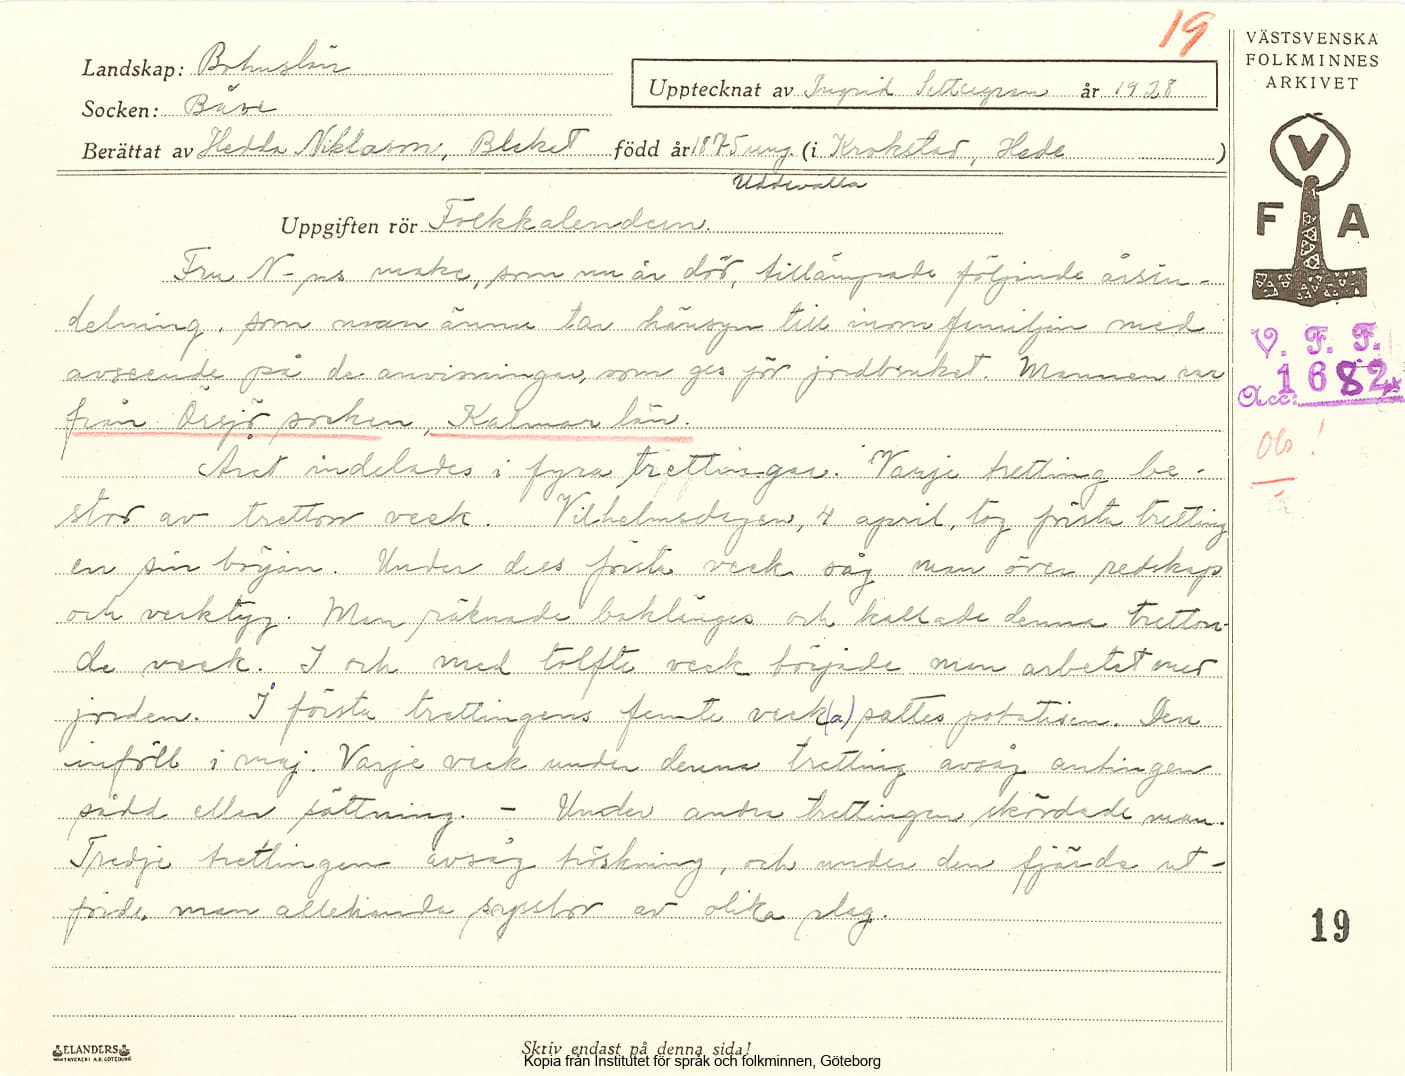 19
VÄSTSVENSKA
FOLKMINNES
ARKIVET
Landskap: Bohuslän
Upptecknat av Ingrid år 1928
Socken: Bäve
Berättat av Hedda Niklasson, Bleket född år 1875 ung. (i Krokstad, Hede)
Uddevalla
Uppgiften rör Folkkalendern.
V
F A
Fru N-ns make, som nu är död, tillämpade följande årsin-
delning, som man ännu tar hänsyn till inom familjen med
avseende på de anvisningar, som ges för jordbruket. Mannen var
från Örsjö socken, Kalmar län.
Året indelades i fyra trettingar. Varje tretting be-
stod av tretton veck. Vilhelmsdagen, 4 april, tog första tretting
en sin början. Under dess första veck såg man över redskap
och verktyg. Man räknade baklänges och kallade denna tretton-
de veck. I och med tolfte veck började man arbetet med
jorden. I första trettingens femte veck(a) sattes potatisen. Den
inföll i maj. Varje veck under denna tretting avsåg antingen
sådd eller sättning. - Under andra trettingen skördade man.
Tredje trettingen avsåg tröskning, och under den fjärde ut-
förde man allehanda sysslor av olika slag.
V. F. F.
Acc: 1682
Obs!
19
ELANDERS
BOKTRYCKERI A.B. GÖTEBORG
Skriv endast på denna sida!
Kopia från Institutet för språk och folkminnen, Göteborg